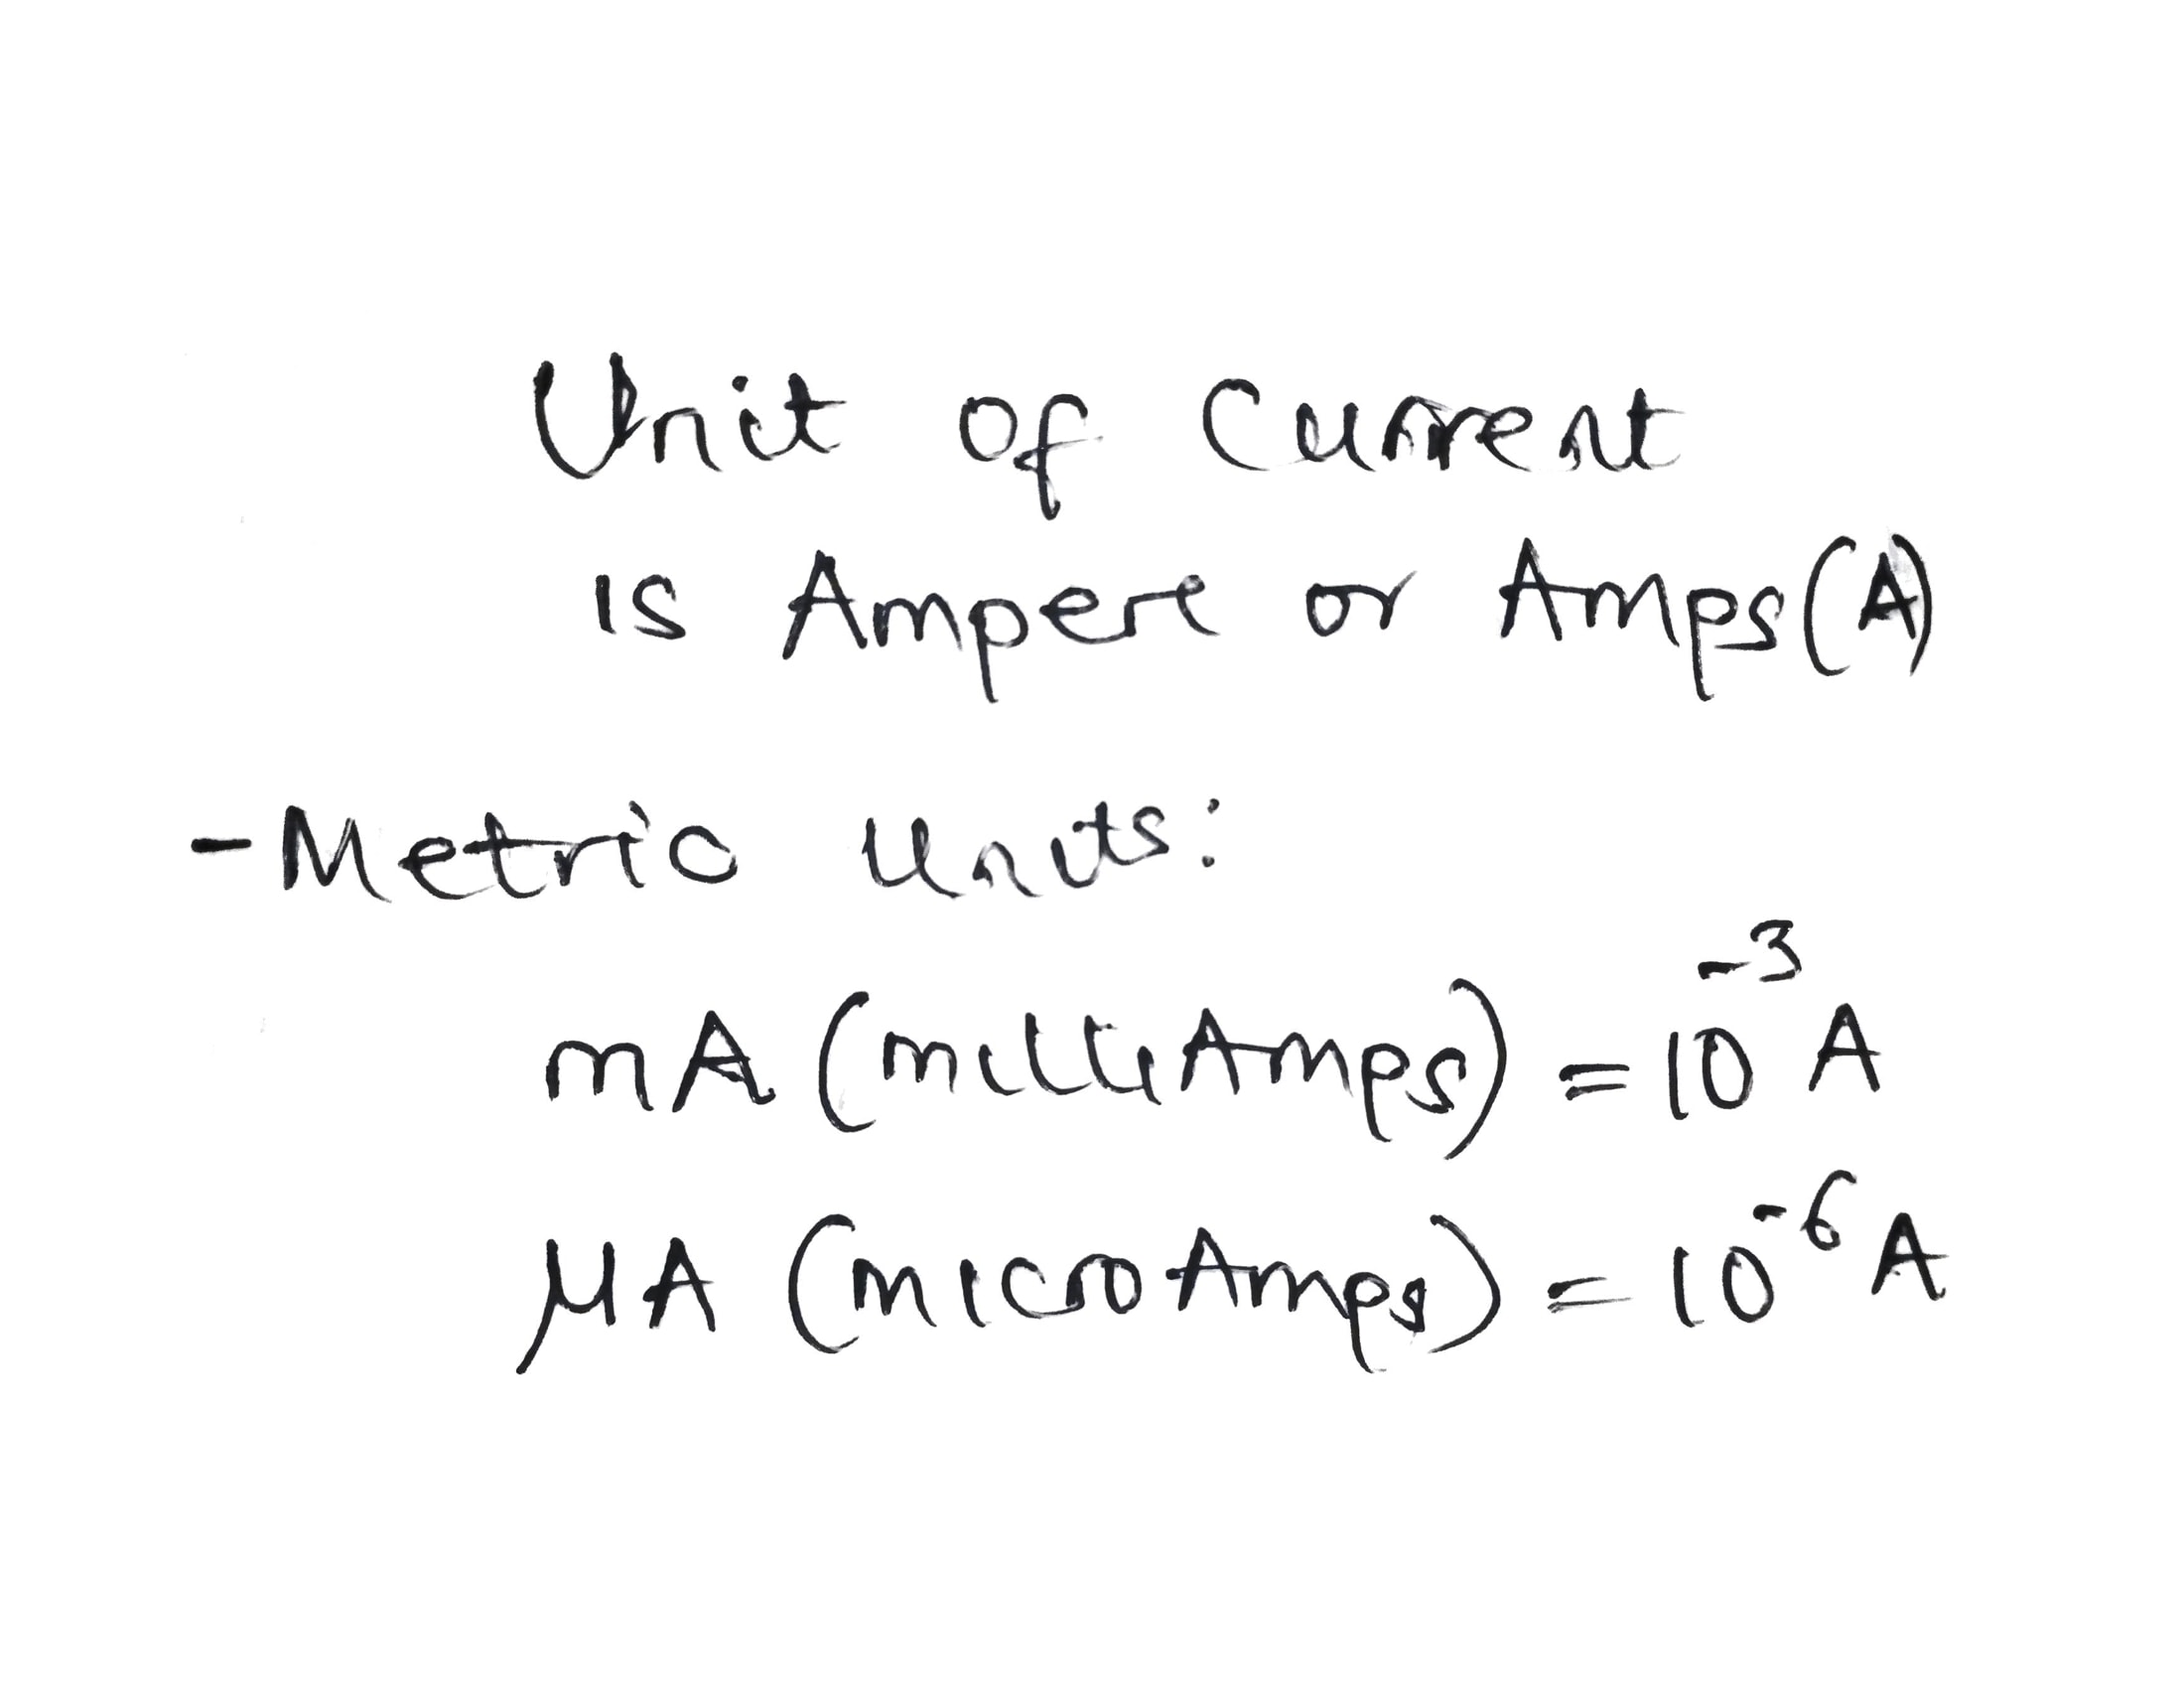 Unit of Current
is Ampere or Amps(A)
-Metric Units:
mA (milliAmps) = 10⁻³ A
μA (microAmps) = 10⁻⁶ A